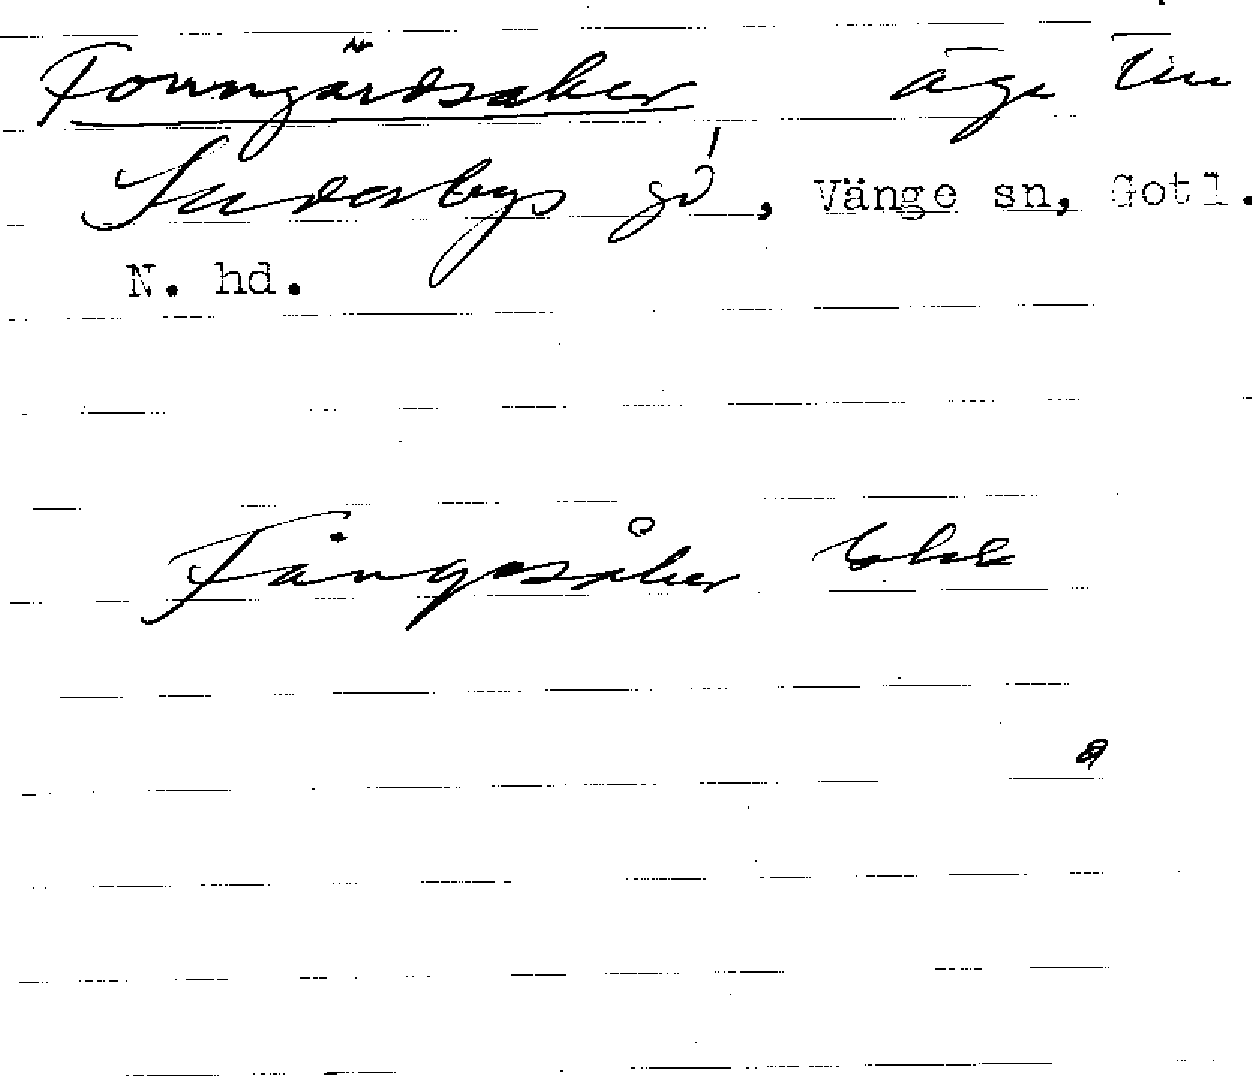 Forngärdsaker äga till
Suderbys gd, Vänge sn, Gotl.
N. hd.
Fångesåker